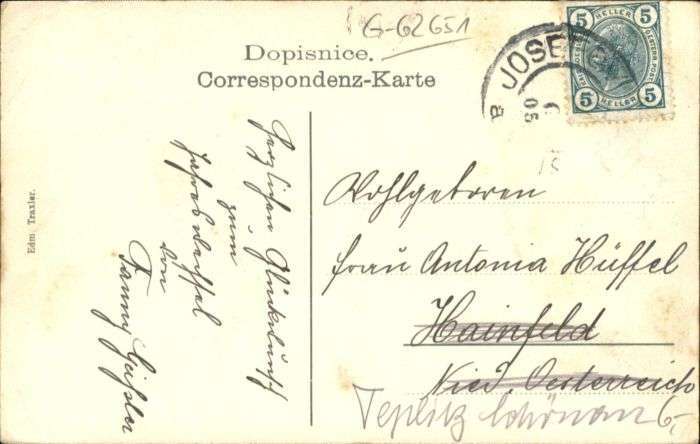 G-62651
Dopisnice.
Correspondenz-Karte
JOSE
a
05
5 HELLER 5
5 HELLER 5
Edm. Traxler.
Herzlichen Glückwunsch
zum
Jahreswechsel
von
Fanny Geißler
Wohlgeboren
Frau Antonia Hüffel
Hainfeld
Nied. Oesterreich
Teplitz Schönau
6-